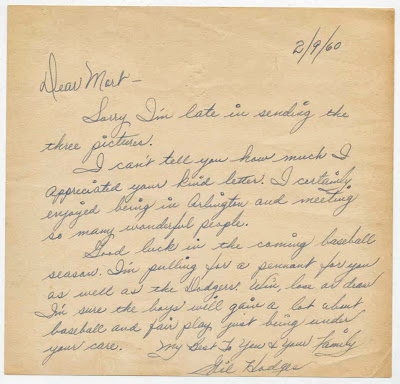 2/9/60
Dear Mort -
Sorry I'm late in sending the
three pictures.
I can't tell you how much I
appreciated your kind letter. I certainly
enjoyed being in Arlington and meeting
so many wonderful people.
Good luck in the coming baseball
season. I'm pulling for a pennant for you
as well as the Dodgers. Win, lose or draw
I'm sure the boys will gain a lot about
baseball and fair play just being under
your care. My Best To You & your Family
Gil Hodges